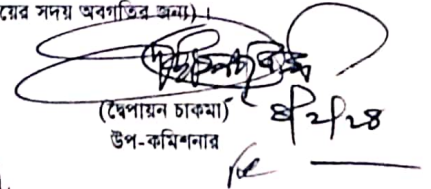 য়ের সদয় অবগতির জন্য)।
(দ্বৈপায়ন চাকমা)
৪/২/২৪
উপ-কমিশনার